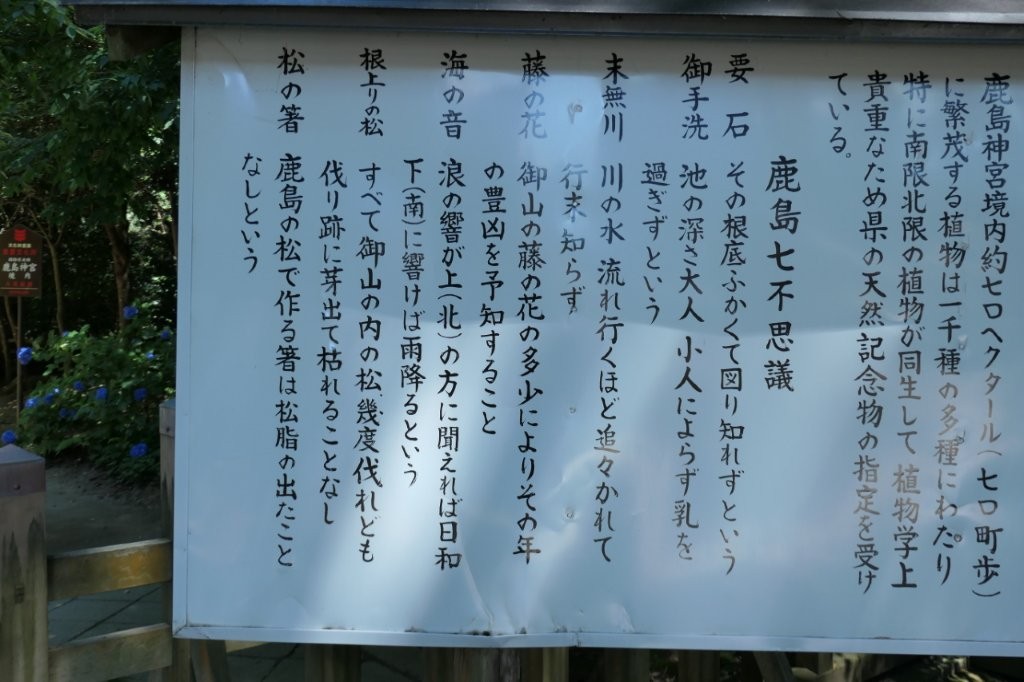 鹿島神宮境内約七〇ヘクタール(七〇町歩)
に繁茂する植物は一千種の多種にわたり
特に南限北限の植物が同生して植物学上
貴重なため県の天然記念物の指定を受け
ている。
鹿島七不思議
要石 その根底ふかくて図り知れずという
御手洗 池の深さ大人小人によらず乳を
過ぎずという
末無川 川の水流れ行くほど追々かれて
行末知らず
藤の花 御山の藤の花の多少によりその年
の豊凶を予知すること
海の音 浪の響が上(北)の方に聞えれば日和
下(南)に響けば雨降るという
根上りの松 すべて御山の内の松、幾度伐れども
伐り跡に芽出て枯れることなし
松の箸 鹿島の松で作る箸は松脂の出たこと
なしという
鹿島神宮